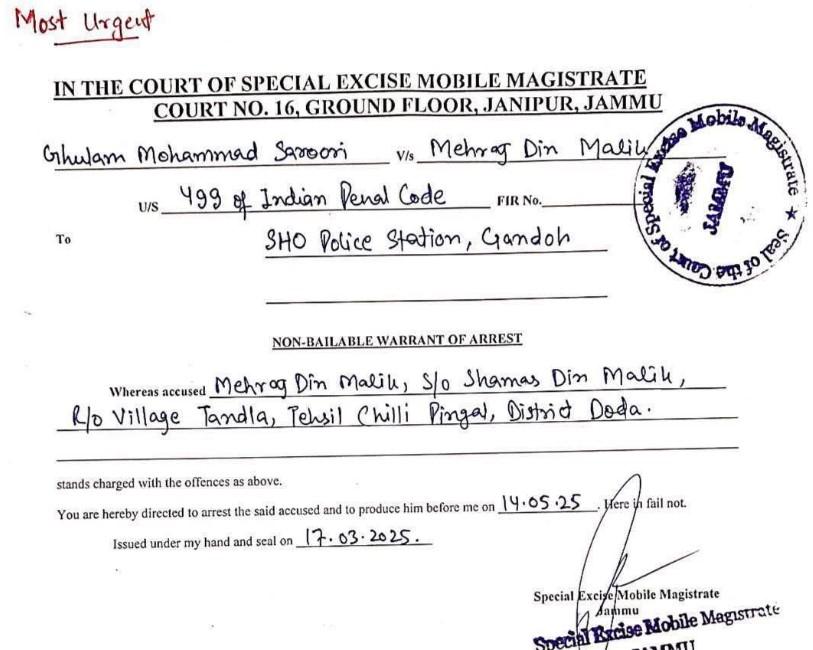 Most Urgent
IN THE COURT OF SPECIAL EXCISE MOBILE MAGISTRATE
COURT NO. 16, GROUND FLOOR, JANIPUR, JAMMU
Ghulam Mohammad Saroori V/s Mehrag Din Malik
U/S 499 of Indian Penal Code FIR No.
To SHO Police Station, Gandoh
Seal of the Court of Special Excise Mobile Magistrate ★
JAMMU
NON-BAILABLE WARRANT OF ARREST
Whereas accused Mehrag Din Malik, S/o Shamas Din Malik,
R/o Village Tandla, Tehsil Chilli Pingal, District Doda.
stands charged with the offences as above.
You are hereby directed to arrest the said accused and to produce him before me on 14.05.25. Here in fail not.
Issued under my hand and seal on 17.03.2025.
Special Excise Mobile Magistrate
Jammu
Special Excise Mobile Magistrate
JAMMU